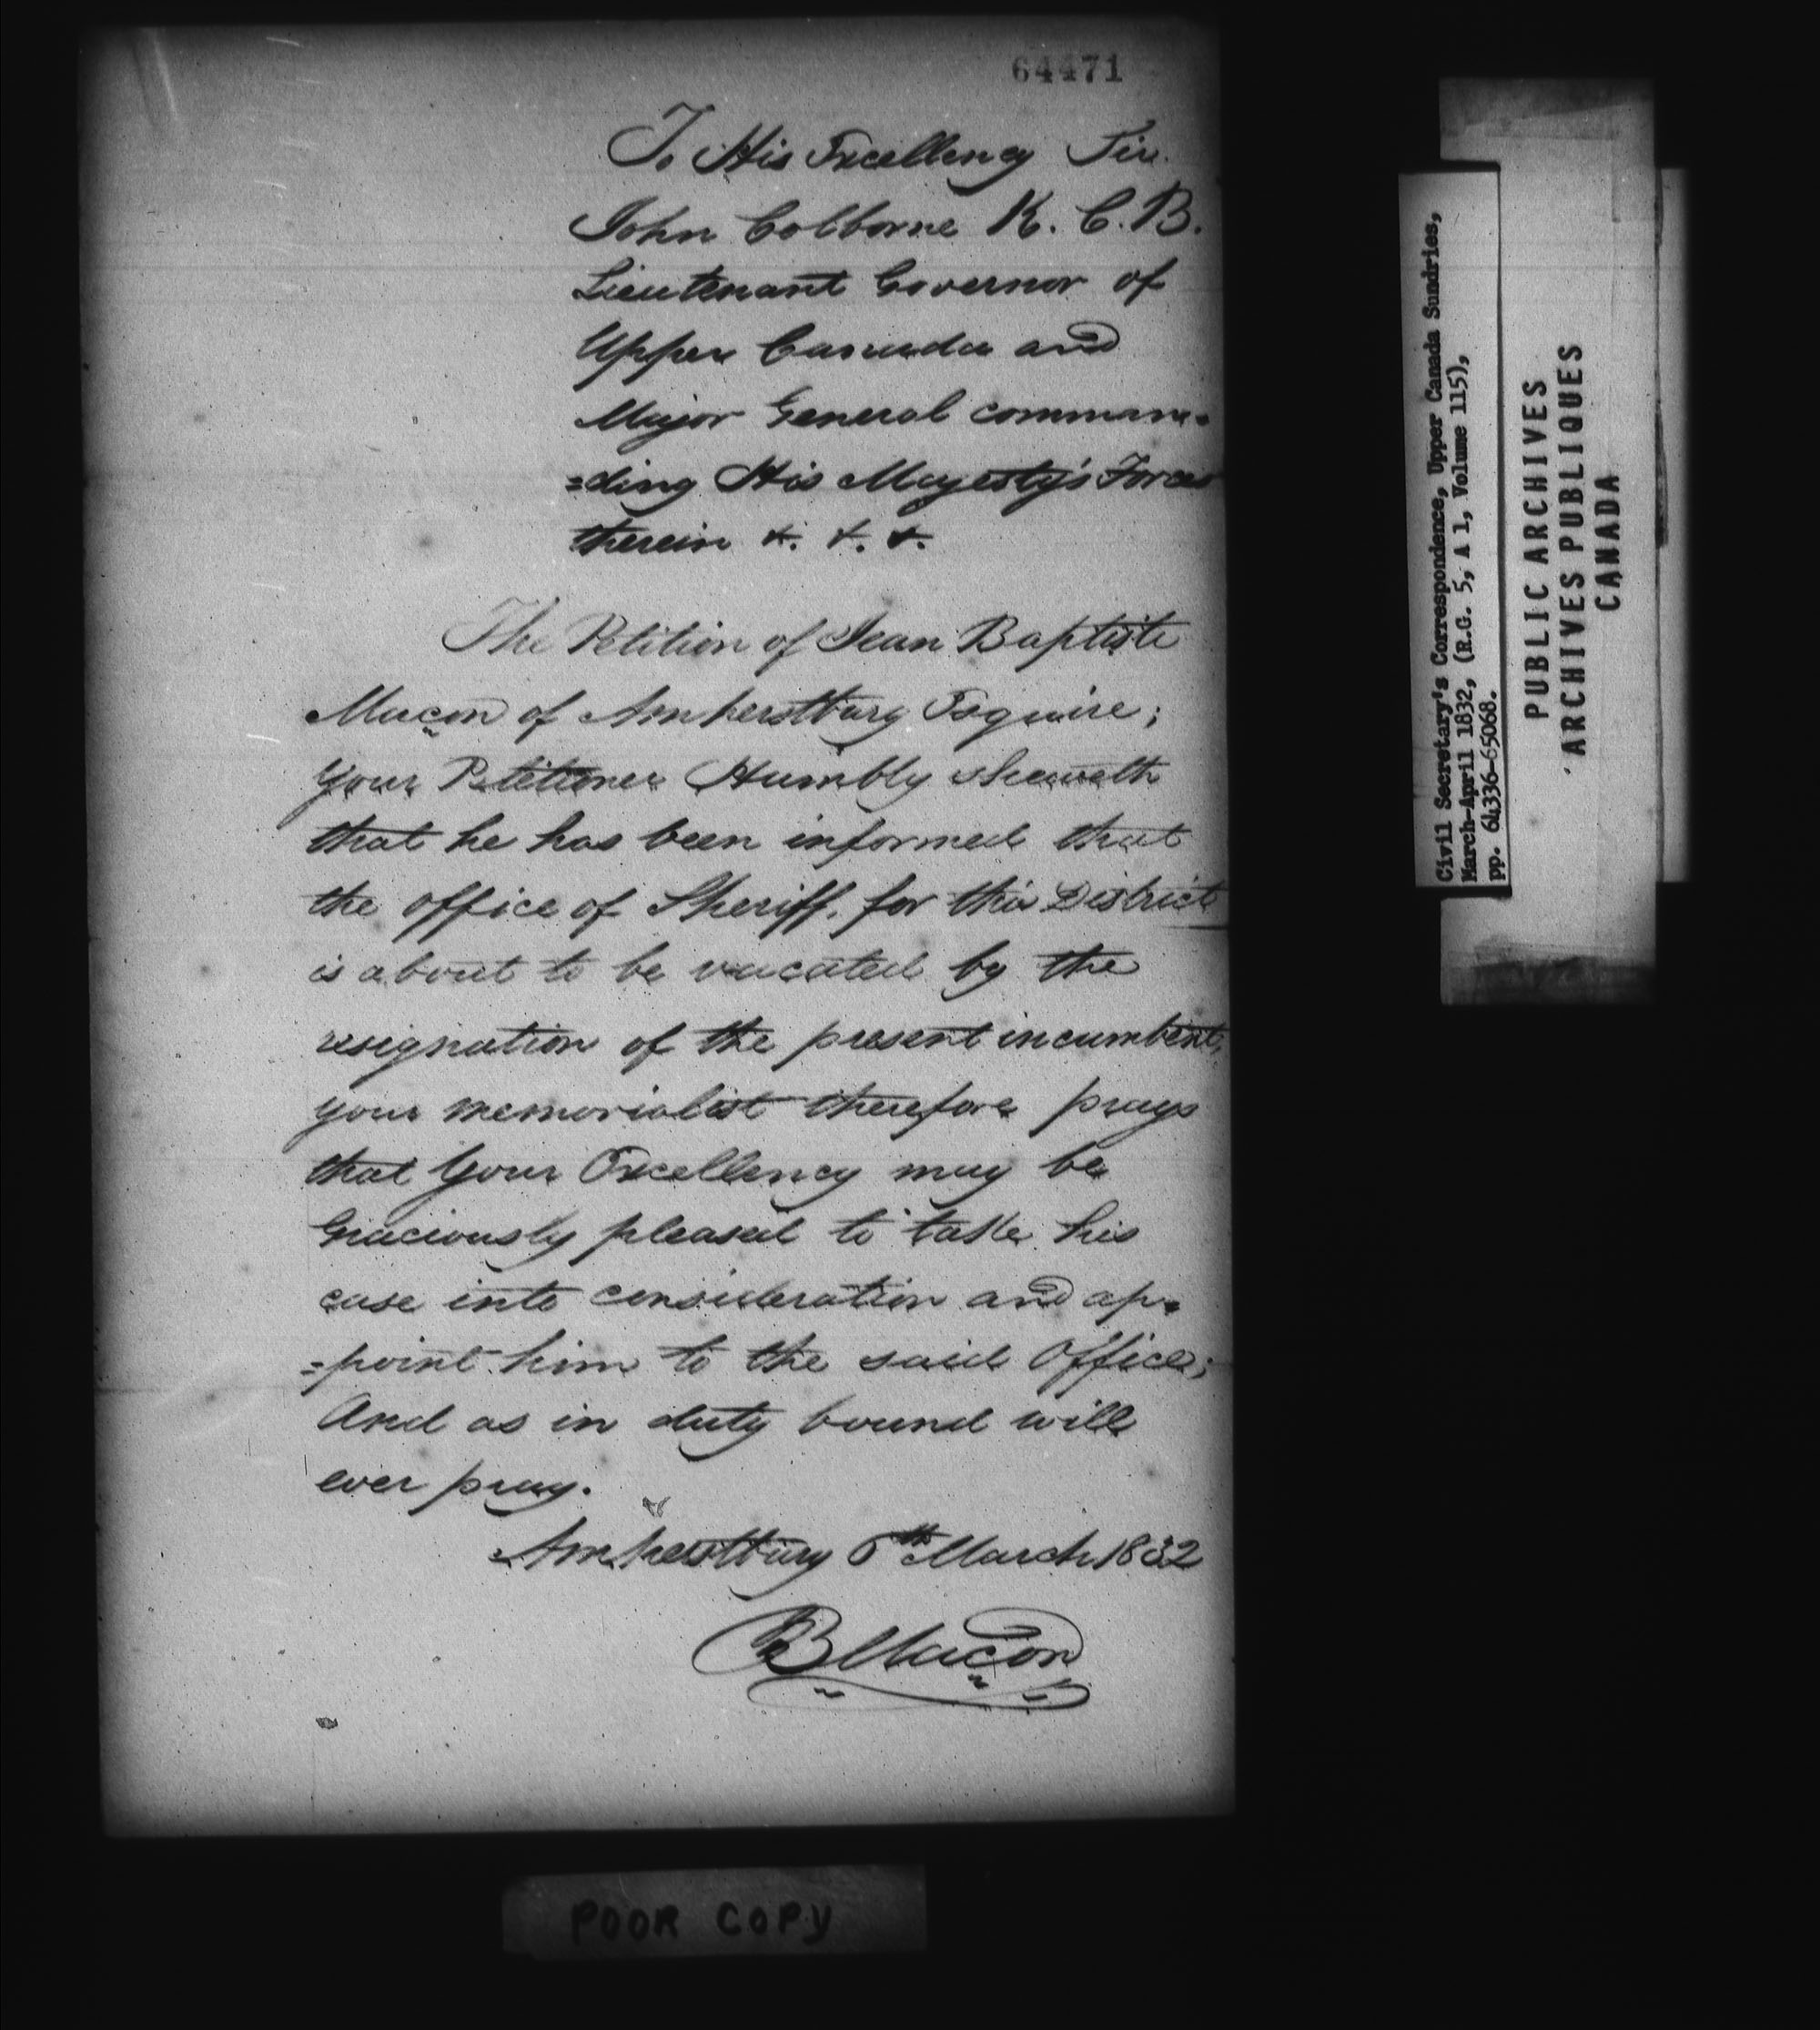 64471
To His Excellency Sir
John Colborne K. C. B.
Lieutenant Governor of
Upper Canada and
Major General comman=
=ding His Majesty's Forces
therein &. &. &.
The Petition of Jean Baptiste
Maçon of Amherstburg Esquire;
Your Petitioner Humbly sheweth
that he has been informed that
the office of Sheriff. for this District
is about to be vacated by the
resignation of the present incumbent,
your memorialist therefore prays
that Your Excellency may be
Graciously pleased to take his
case into consideration and ap=
=point him to the said Office;
And as in duty bound will
ever pray.
Amherstburg 6th March 1832
JB Maçon
POOR COPY
Civil Secretary's Correspondence, Upper Canada Sundries,
March-April 1832, (R.G. 5, A 1, Volume 115),
pp. 64336-65068.
PUBLIC ARCHIVES
ARCHIVES PUBLIQUES
CANADA